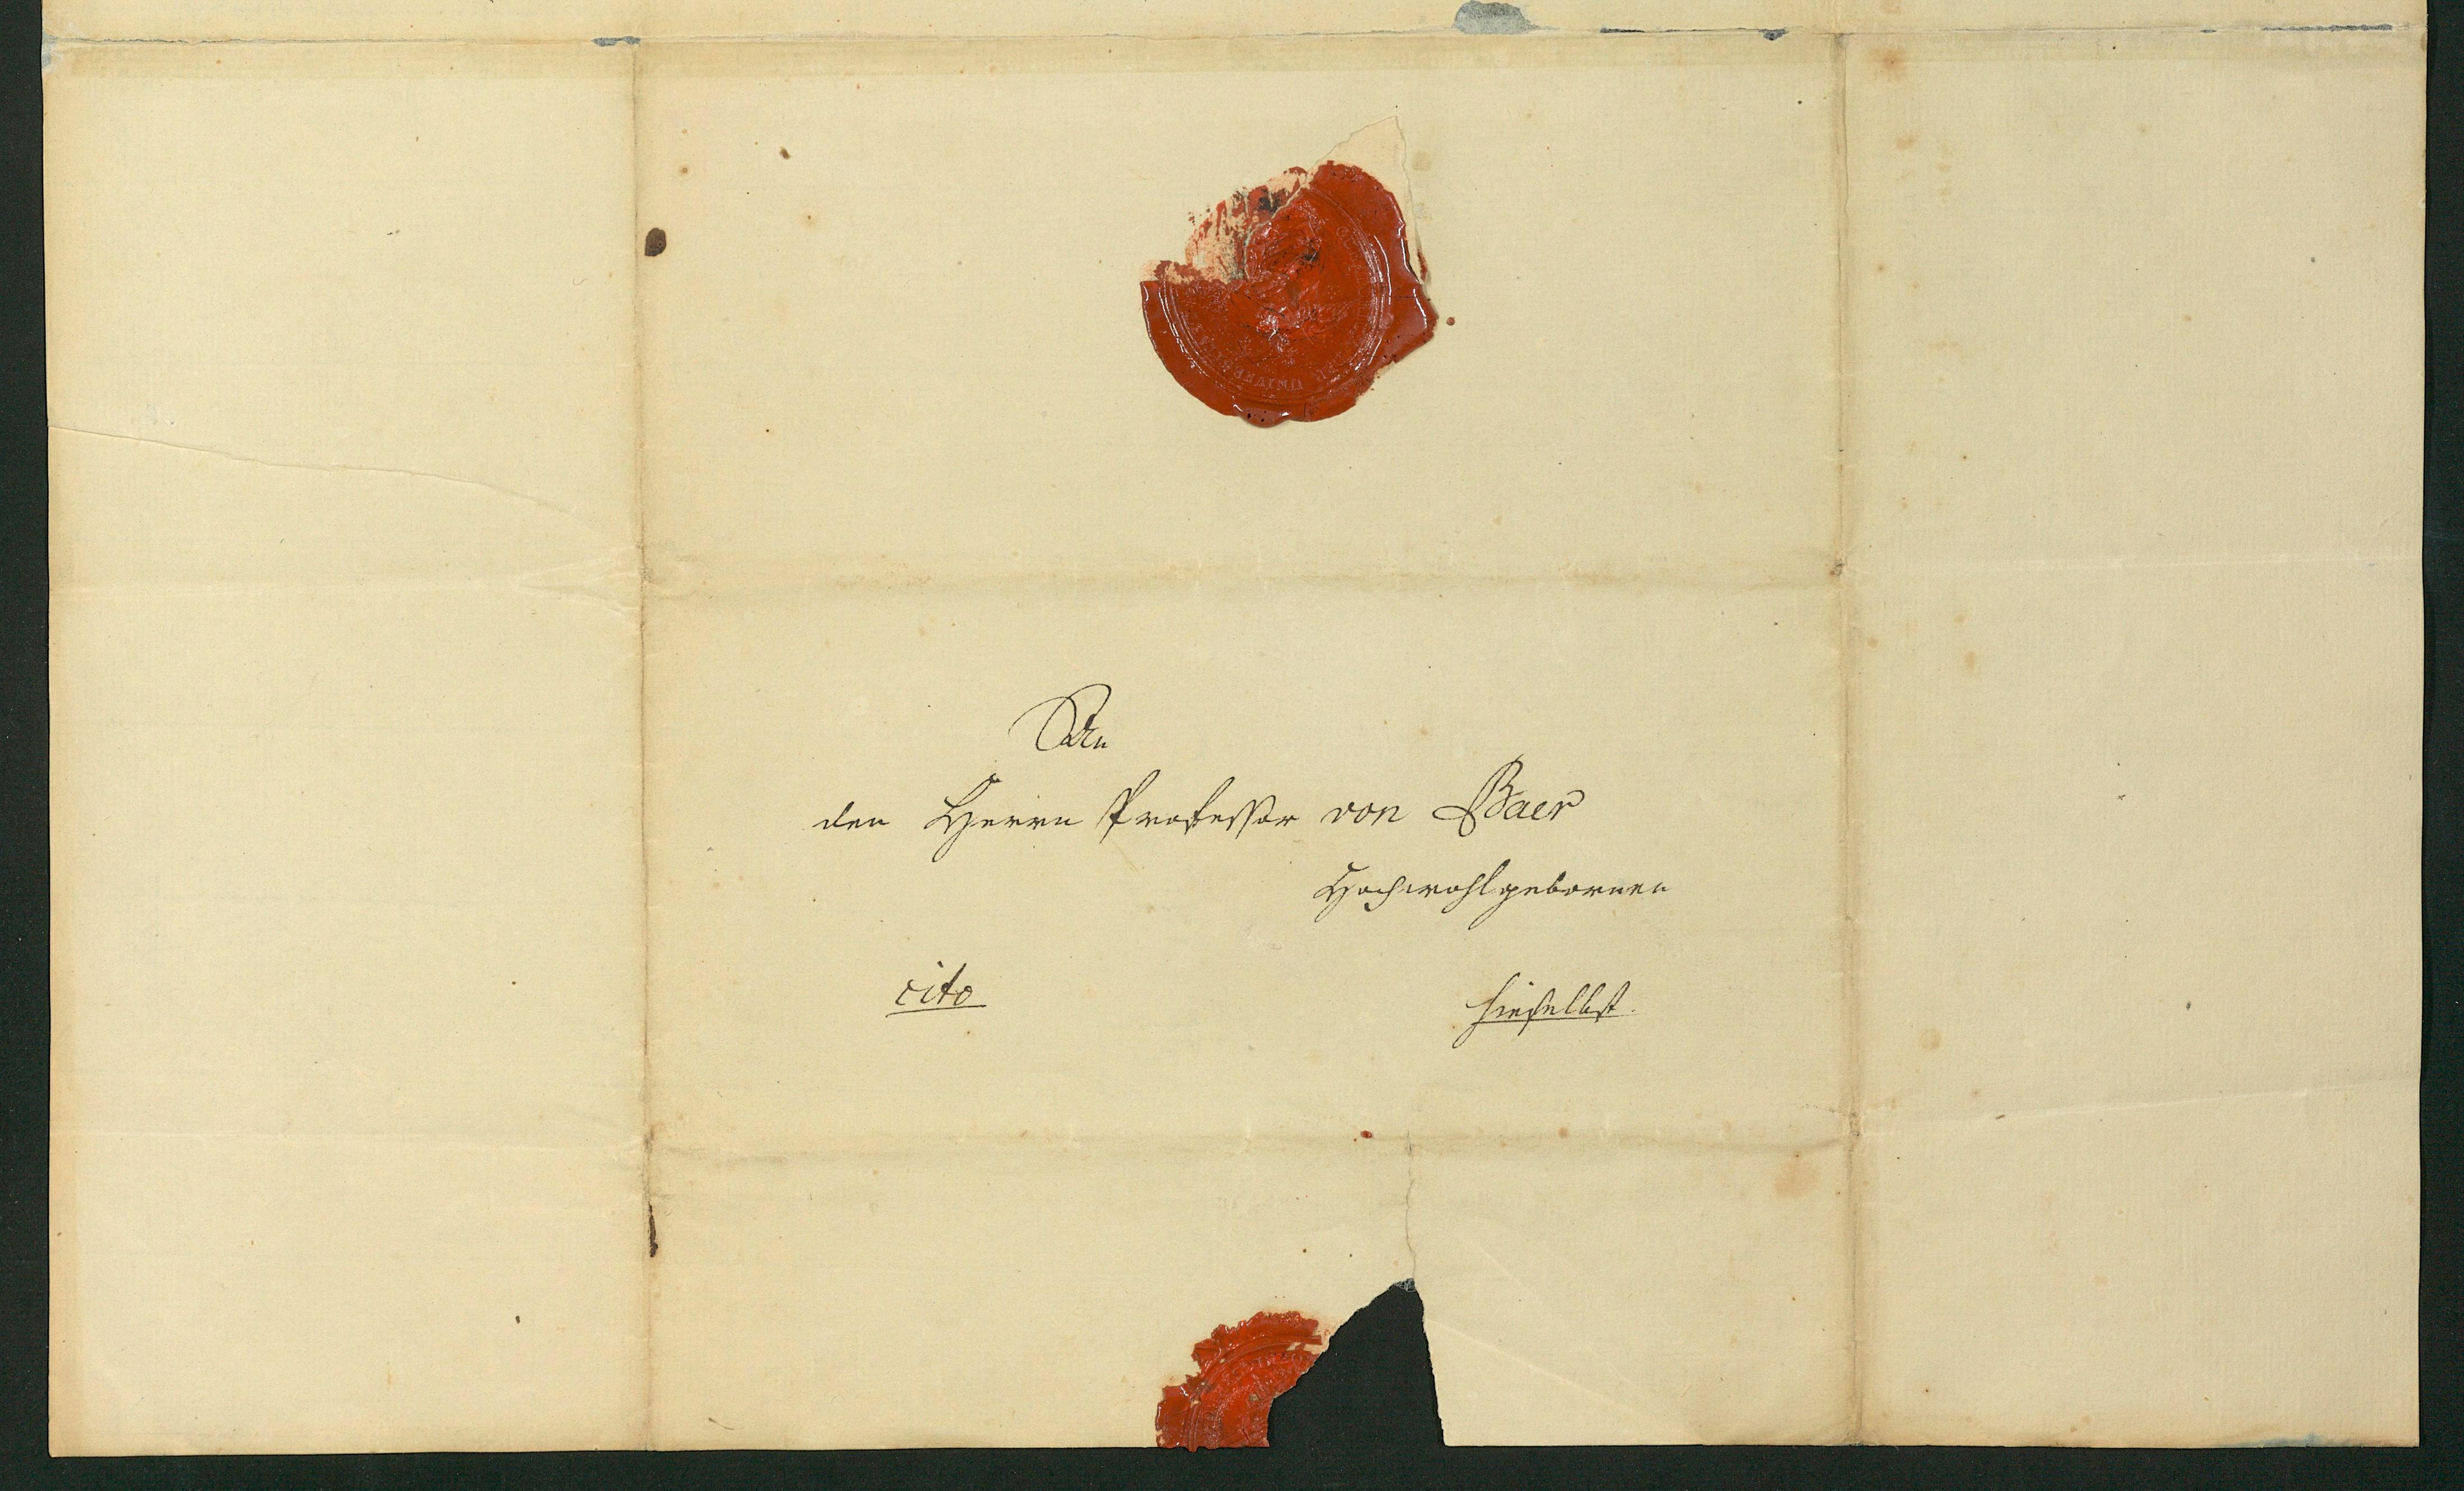 An
den Herrn Professor von Baer
Hochwohlgebornen
cito
hieselbst.